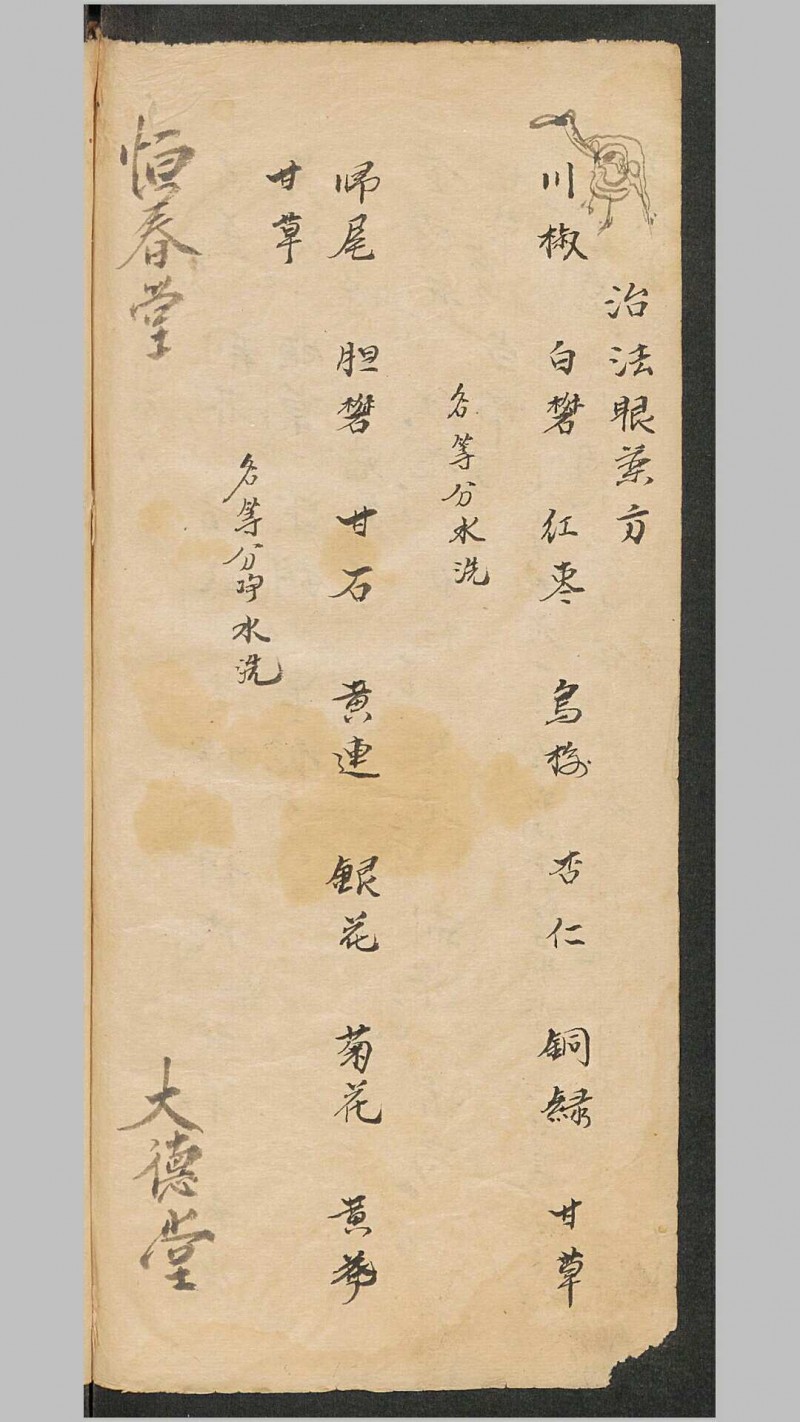 治法眼药方
川椒 白礬 红枣 烏梅 杏仁 銅緑 甘草
各等分水洗
归尾 胆礬 甘石 黄連 銀花 菊花 黄
甘草
各等分 水洗
恒春堂 大德堂